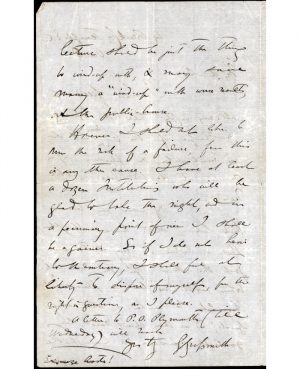 lecture should be just the thing
to wind-up with, & may save
many a "wind-up" with worse results
at the public-house.
However I should not like to
run the risk of a failure for this
or any other cause. I have at least
a dozen Institutions who will be
glad to take the night, and in
a pecuniary point of view I shall
be a gainer. So if I do not hear
to the contrary, I shall feel at
liberty to dispose of myself, for the
night in question as I please.
A letter to P.O. Plymouth (till
Wednesday) will reach
Yrs try G Grossmith
Excuse haste!